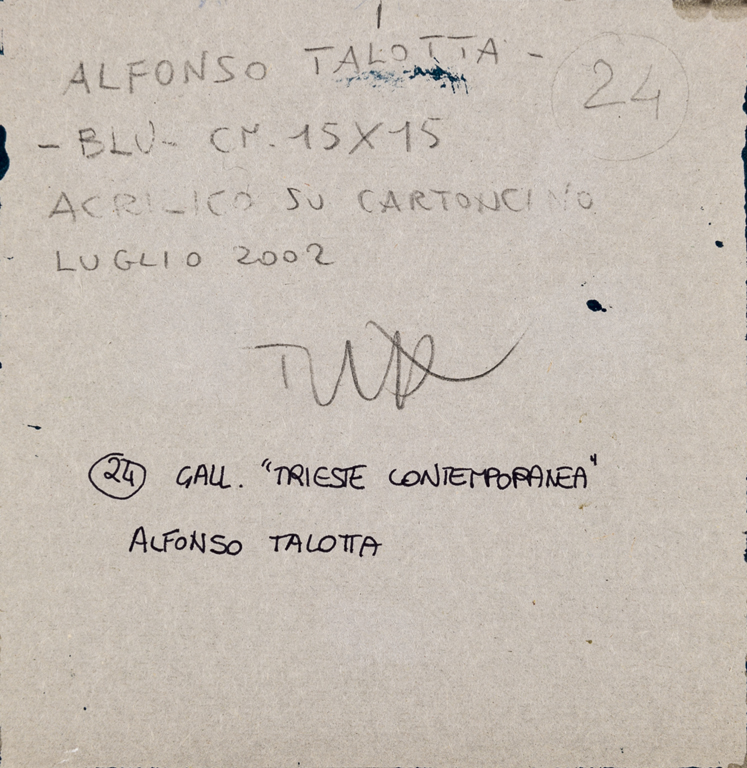 ALFONSO TALOTTA -
24
- BLU - CM. 15X15
ACRILICO SU CARTONCINO
LUGLIO 2002
24 GALL. "TRIESTE CONTEMPORANEA"
ALFONSO TALOTTA